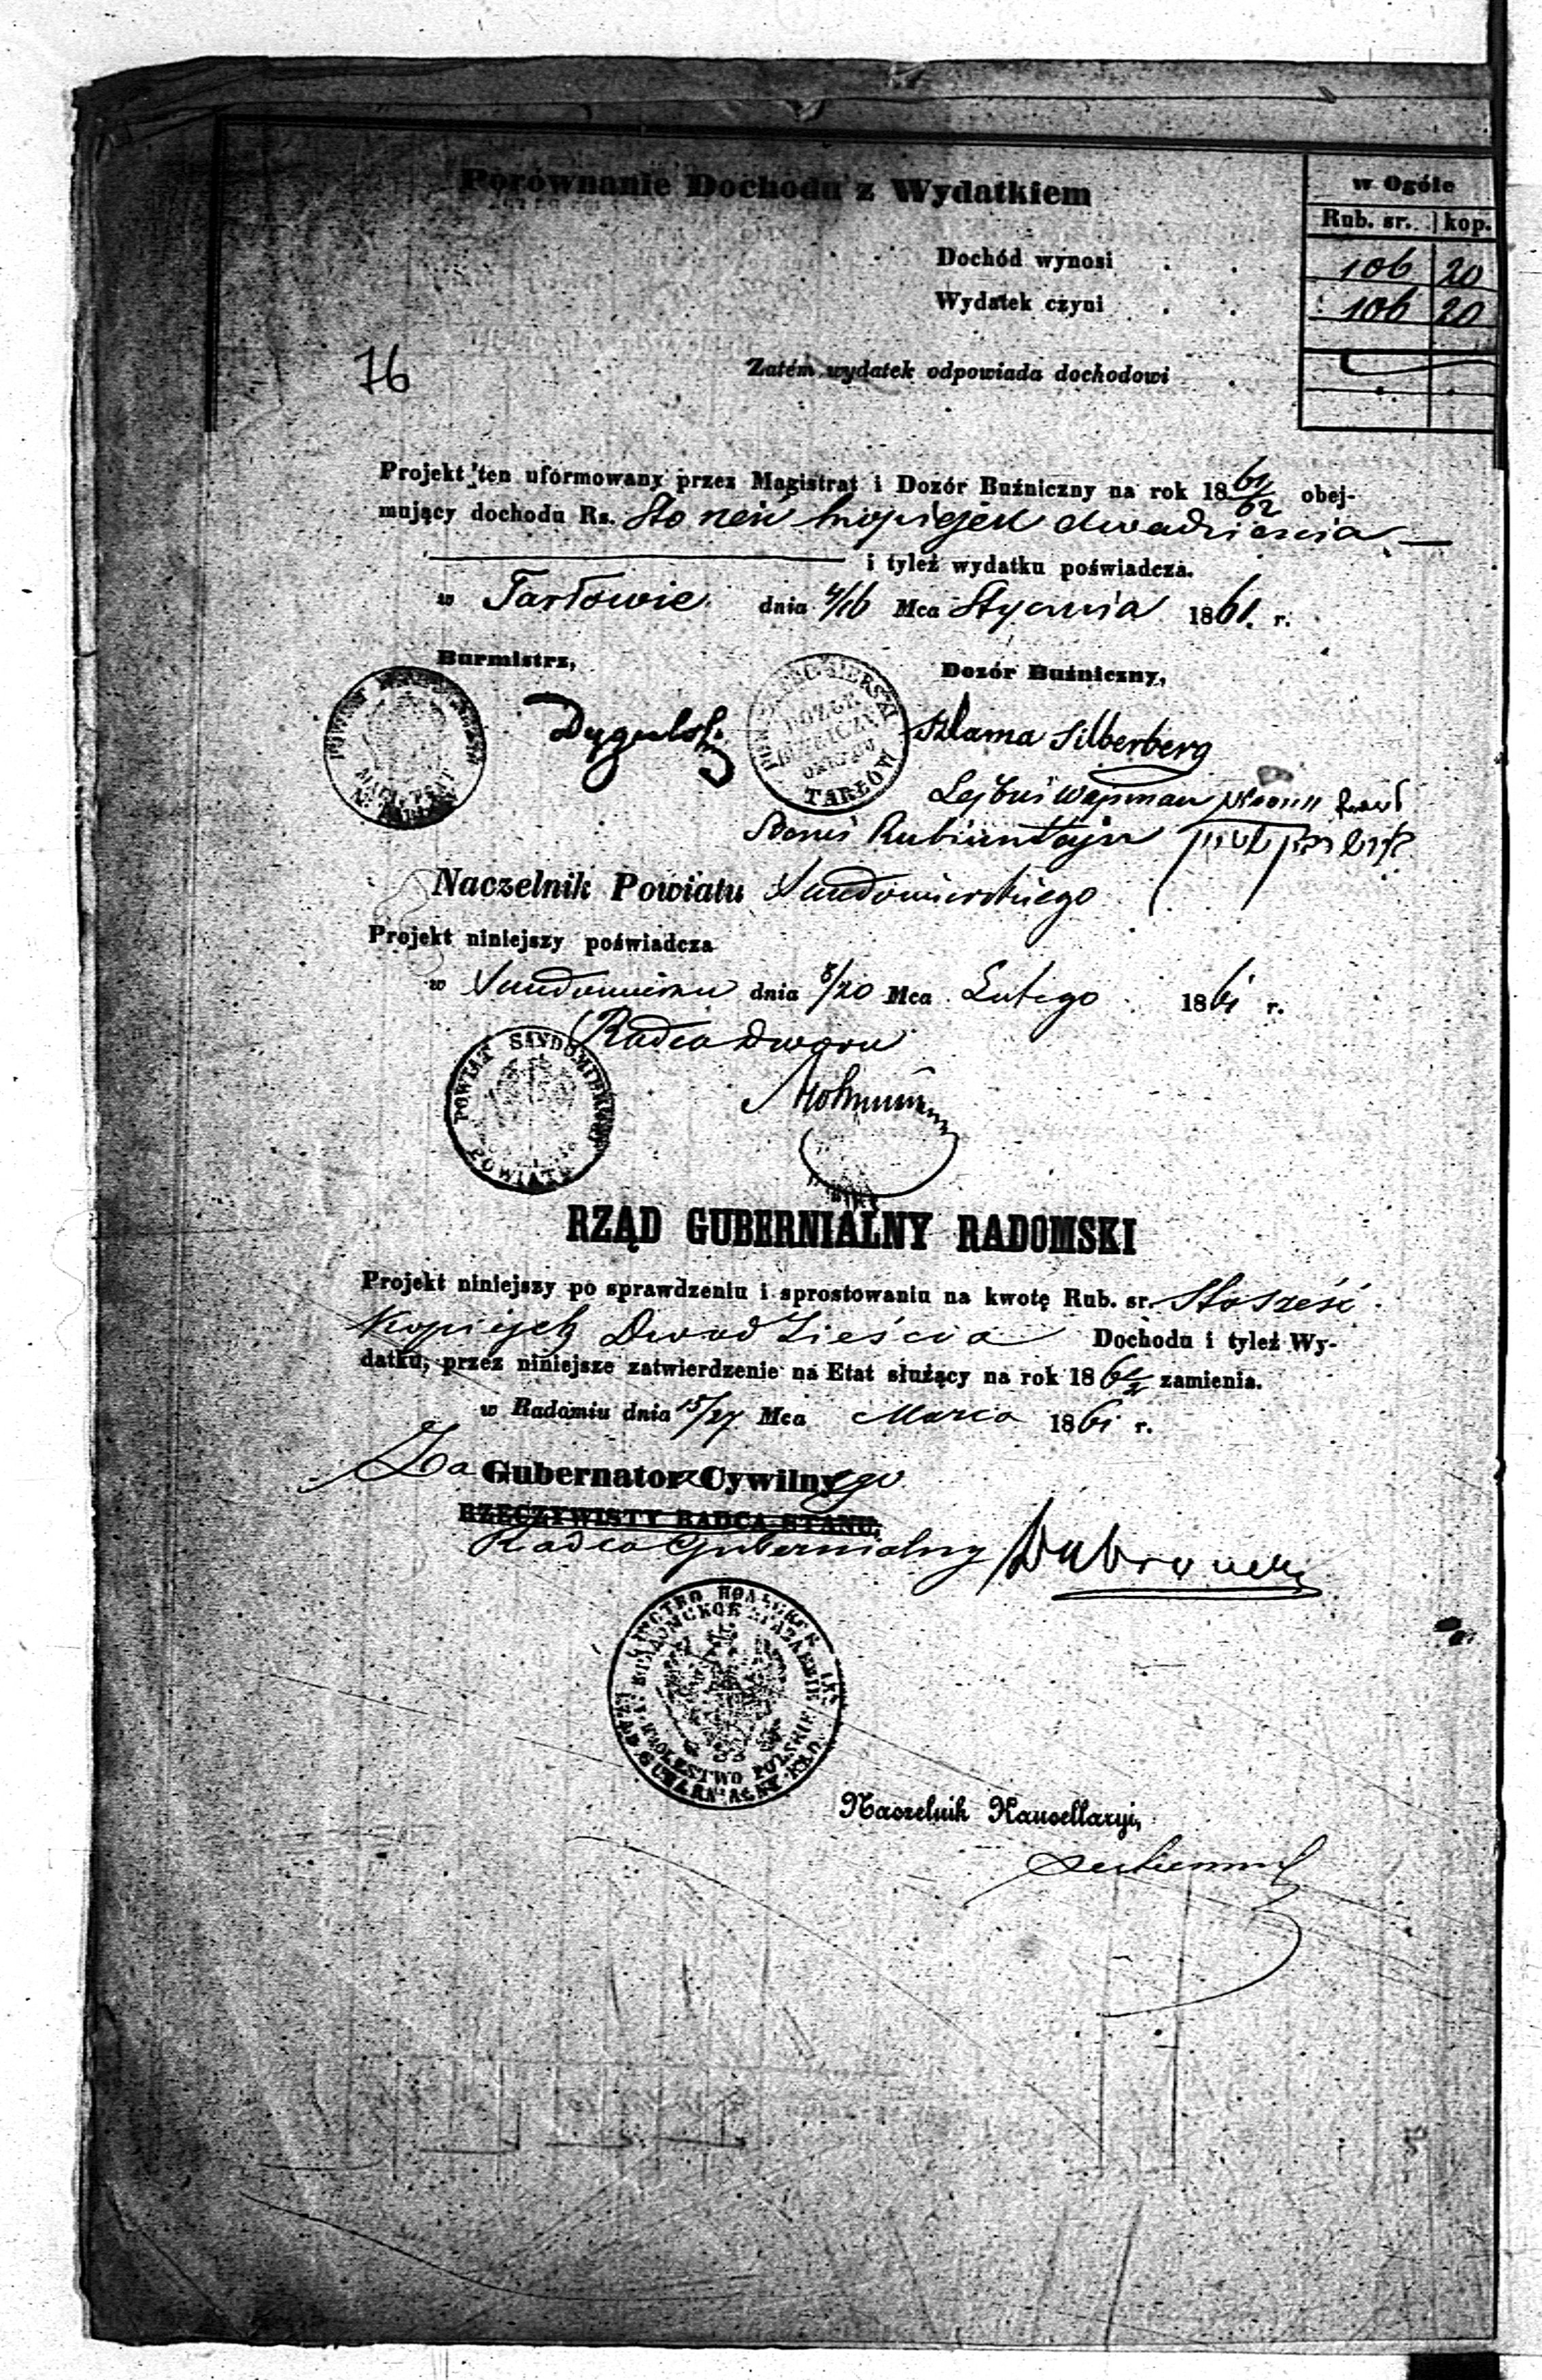 Porównanie Dochodu z Wydatkiem
w Ogóle
Rub. sr. kop.
Dochód wynosi 106 20
Wydatek czyni 106 20
76
Zatém wydatek odpowiada dochodowi
Projekt ten uformowany przez Magistrat i Dozór Buźniczny na rok 1861/62 obej-
mujący dochodu Rs. Sto kopiejek dwadzieścia
i tyleż wydatku poświadcza.
w Tarłowie dnia 4/16 Mca Stycznia 1861. r.
Burmistrz,
Dozór Buźniczny,
Szlama Silberberg
Lejbuś Wajsman
Rubinsztajn
Naczelnik Powiatu Sandomierskiego
Projekt niniejszy poświadcza
w Sandomierzu dnia 8/20 Mca Lutego 1861 r.
Radca Dworu
POWIAT SANDOMIERSKI
RZĄD GUBERNIALNY RADOMSKI
Projekt niniejszy po sprawdzeniu i sprostowaniu na kwotę Rub. sr. Sto sześć
Kopiejek Dwadzieścia Dochodu i tyleż Wy-
datku, przez niniejsze zatwierdzenie na Etat służący na rok 1861/2 zamienia.
w Radomiu dnia 15/27 Mca Marca 1861 r.
Za Gubernatora Cywilnego
RZECZYWISTY RADCA STANU,
Radca Gubernialny
Naczelnik Kancellaryi,